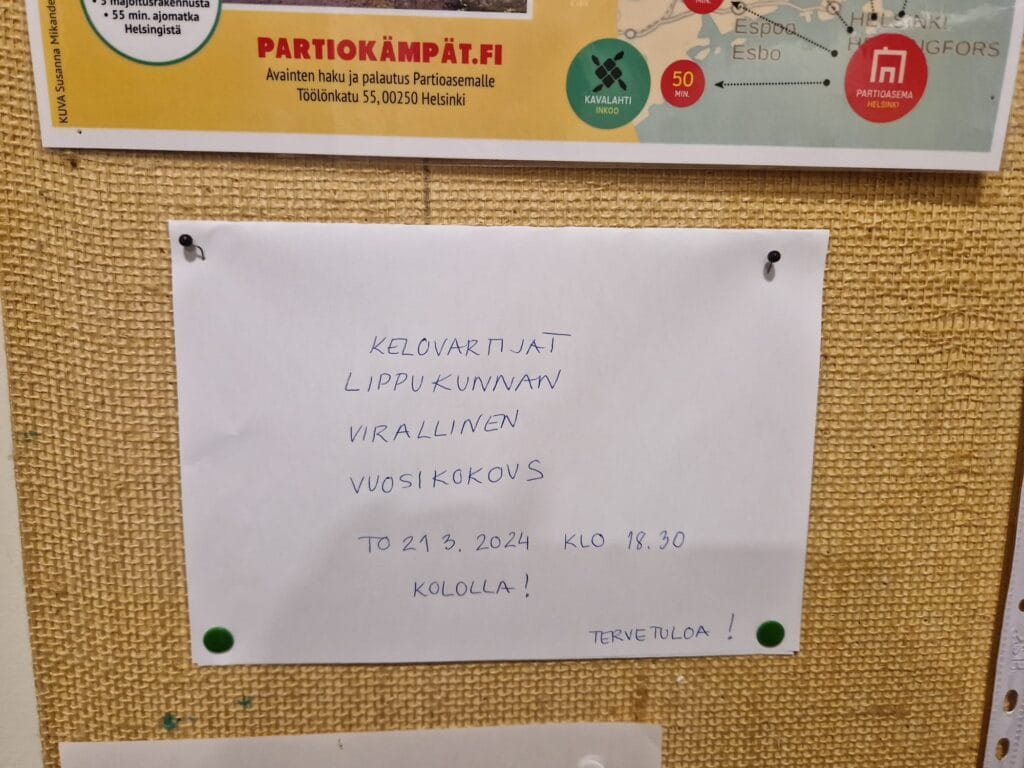 • 3 majoitusrakennusta
• 55 min. ajomatka
Helsingistä
KUVA Susanna Mikander
PARTIOKÄMPÄT.FI
Avainten haku ja palautus Partioasemalle
Töölönkatu 55, 00250 Helsinki
KAVALAHTI
INKOO
50
MIN.
MIN.
Espoo
Esbo
HELSINKI
PARTIOASEMA
HELSINKI
KELOVARTIJAT
LIPPUKUNNAN
VIRALLINEN
VUOSIKOKOUS
TO 21 3. 2024 KLO 18.30
KOLOLLA!
TERVETULOA!